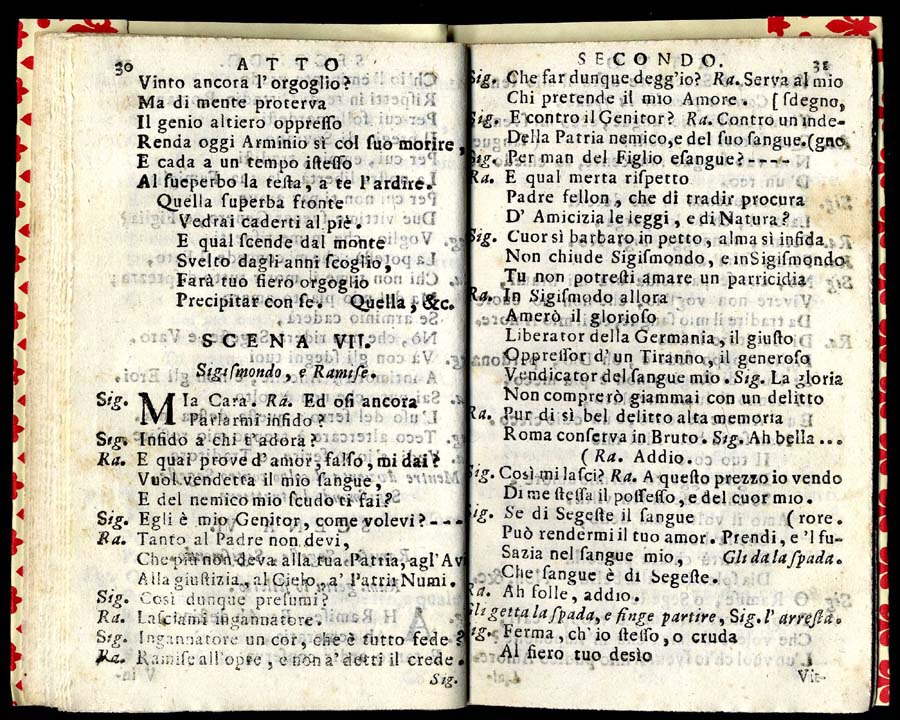 30 ATTO
Vinto ancora l' orgoglio?
Ma di mente proterva
Il genio altiero oppreſſo
Renda oggi Arminio sì col ſuo morire,
E cada a un tempo iſteſſo
Al ſueperbo la teſta, a te l'ardire.
Quella ſuperba fronte
Vedrai caderti al piè.
E qual ſcende dal monte
Svelto dagli anni ſcoglio,
Farà tuo fiero orgoglio
Precipitar con ſe. Quella, &c.
SCENA VII.
Sigiſmondo, e Ramiſe.
Sig. MIa Cara. Ra. Ed oſi ancora
Parlarmi infido?
Sig. Infido a chi t'adora?
Ra. E quai prove d' amor, falſo, mi dai?
Vuol vendetta il mio ſangue,
E del nemico mio ſcudo ti fai?
Sig. Egli è mio Genitor, come volevi?---
Ra. Tanto al Padre non devi,
Che più non deva alla tua Patria, agl'Avi
Alla giuſtizia, al Cielo, a' Patrii Numi.
Sig. Così dunque preſumi?
Ra. Laſciami ingannatore.
Sig. Ingannatore un cor, che è tutto fede?
Ra. Ramiſe all'opre, e non a' detti il crede.
Sig.
SECONDO. 31
Sig. Che far dunque degg'io? Ra. Serva al mio
Chi pretende il mio Amore. [ſdegno,
Sig. E contro il Genitor? Ra. Contro un'inde-
Della Patria nemico, e del ſuo ſangue. (gno
Sig. Per man del Figlio eſangue?----
Ra. E qual merta riſpetto
Padre fellon, che di tradir procura
D' Amicizia le leggi, e di Natura?
Sig. Cuor sì barbaro in petto, alma sì infida
Non chiude Sigiſmondo, e in Sigiſmondo
Tu non potreſti amare un parricidia
Ra. In Sigiſmodo allora
Amerò il glorioſo
Liberator della Germania, il giuſto
Oppreſſor d' un Tiranno, il generoſo
Vendicator del ſangue mio. Sig. La gloria
Non comprerò giammai con un delitto
Ra. Pur di sì bel delitto alta memoria
Roma conſerva in Bruto. Sig. Ah bella ...
(Ra. Addio.
Sig. Così mi laſci? Ra. A queſto prezzo io vendo
Di me ſteſſa il poſſeſſo, e del cuor mio.
Sig. Se di Segeſte il ſangue (rore.
Può rendermi il tuo amor. Prendi, e 'l fu-
Sazia nel ſangue mio, Gli da la ſpada.
Che ſangue è di Segeſte.
Ra. Ah folle, addio.
Gli getta la ſpada, e finge partire, Sig. l' arreſta.
Sig. Ferma, ch' io ſteſſo, o cruda
Al fiero tuo desìo
Vit-